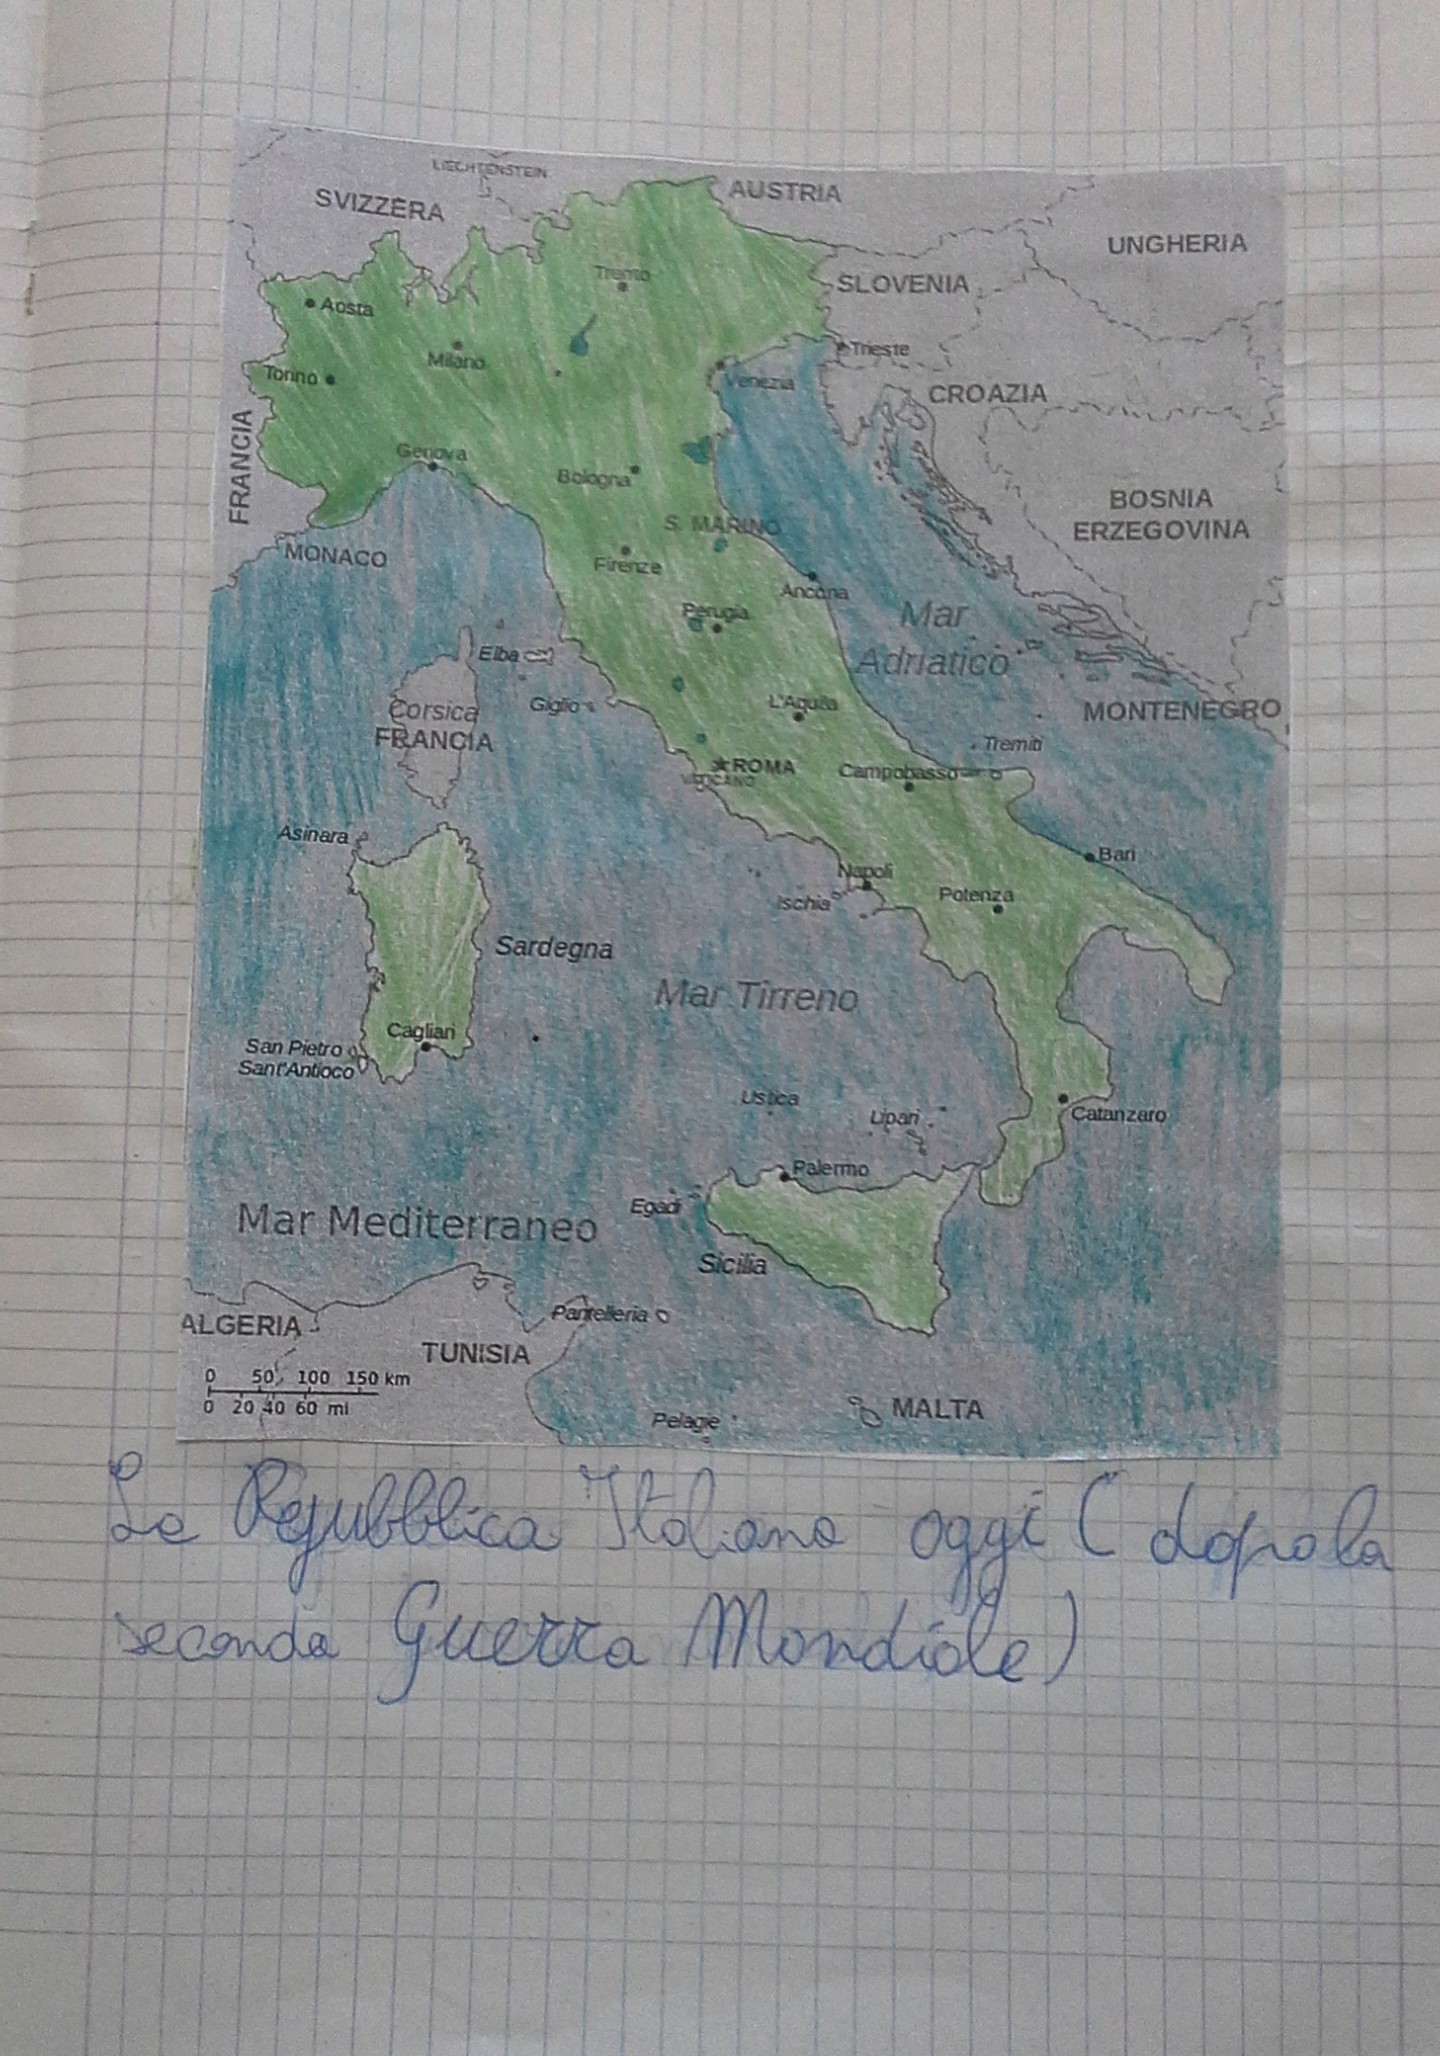 LIECHTENSTEIN
SVIZZERA
AUSTRIA
UNGHERIA
SLOVENIA
Trento
Aosta
Milano
Trieste
Torino
Venezia
CROAZIA
FRANCIA
Genova
Bologna
BOSNIA
ERZEGOVINA
S. MARINO
MONACO
Firenze
Ancona
Perugia
Mar
Adriatico
Elba
Giglio
L'Aquila
MONTENEGRO
Corsica
FRANCIA
Tremiti
ROMA
VATICANO
Campobasso
Asinara
Bari
Napoli
Ischia
Potenza
Sardegna
Mar Tirreno
Cagliari
San Pietro
Sant'Antioco
Ustica
Lipari
Catanzaro
Palermo
Egadi
Mar Mediterraneo
Sicilia
Pantelleria
ALGERIA
TUNISIA
0 50 100 150 km
0 20 40 60 mi
MALTA
Pelagie
La Repubblica Italiana oggi ( dopo la
seconda Guerra Mondiale)